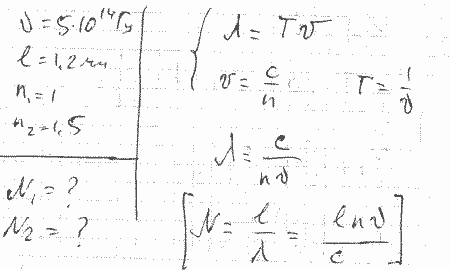 ν = 5·10¹⁴ Гц
l = 1,2 мм
n₁ = 1
n₂ = 1,5
N₁ = ?
N₂ = ?
λ = Tv
v = c/n T = 1/ν
λ = c/nν
[N = l/λ = lnν/c]